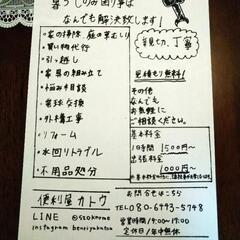 暮らしのお困り事は
なんでも解決致します！
・家の掃除 庭の草むしり
・買い物代行
・引っ越し
・家具の組み立て
・悩み相談
・電球交換
・外構工事
・リフォーム
・水回りトラブル
・不用品処分
親切、丁寧
見積もり無料!
その他
なんでも
お気軽に
ご相談ください。
基本料金
1時間 1500円〜
出張料金
1000円〜
便利屋カトウ
LINE @520korome
instagram benriyakatou
お問合せはこちら
TEL 080-6993-5748
営業時間/9:00〜19:00
定休日/年中無休